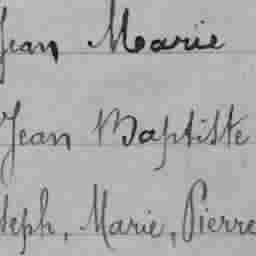 Jean Marie
Jean Baptiste
seph, Marie, Pierre